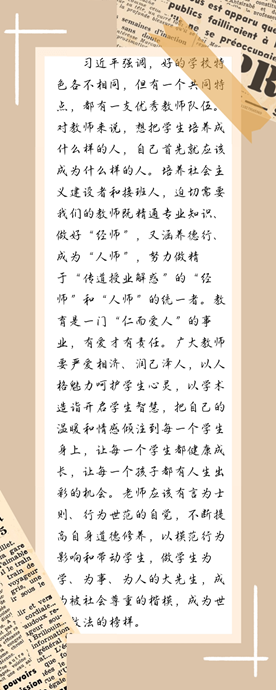 习近平强调，好的学校特
色各不相同，但有一个共同特
点，都有一支优秀教师队伍。
对教师来说，想把学生培养成
什么样的人，自己首先就应该
成为什么样的人。培养社会主
义建设者和接班人，迫切需要
我们的教师既精通专业知识、
做好“经师”，又涵养德行、
成为“人师”，努力做精
于“传道授业解惑”的“经
师”和“人师”的统一者。教
育是一门“仁而爱人”的事
业，有爱才有责任。广大教师
要严爱相济、润己泽人，以人
格魅力呵护学生心灵，以学术
造诣开启学生智慧，把自己的
温暖和情感倾注到每一个学生
身上，让每一个学生都健康成
长，让每一个孩子都有人生出
彩的机会。老师应该有言为士
则、行为世范的自觉，不断提
高自身道德修养，以模范行为
影响和带动学生，做学生为
学、为事、为人的大先生，成
为被社会尊重的楷模，成为世
效法的榜样。